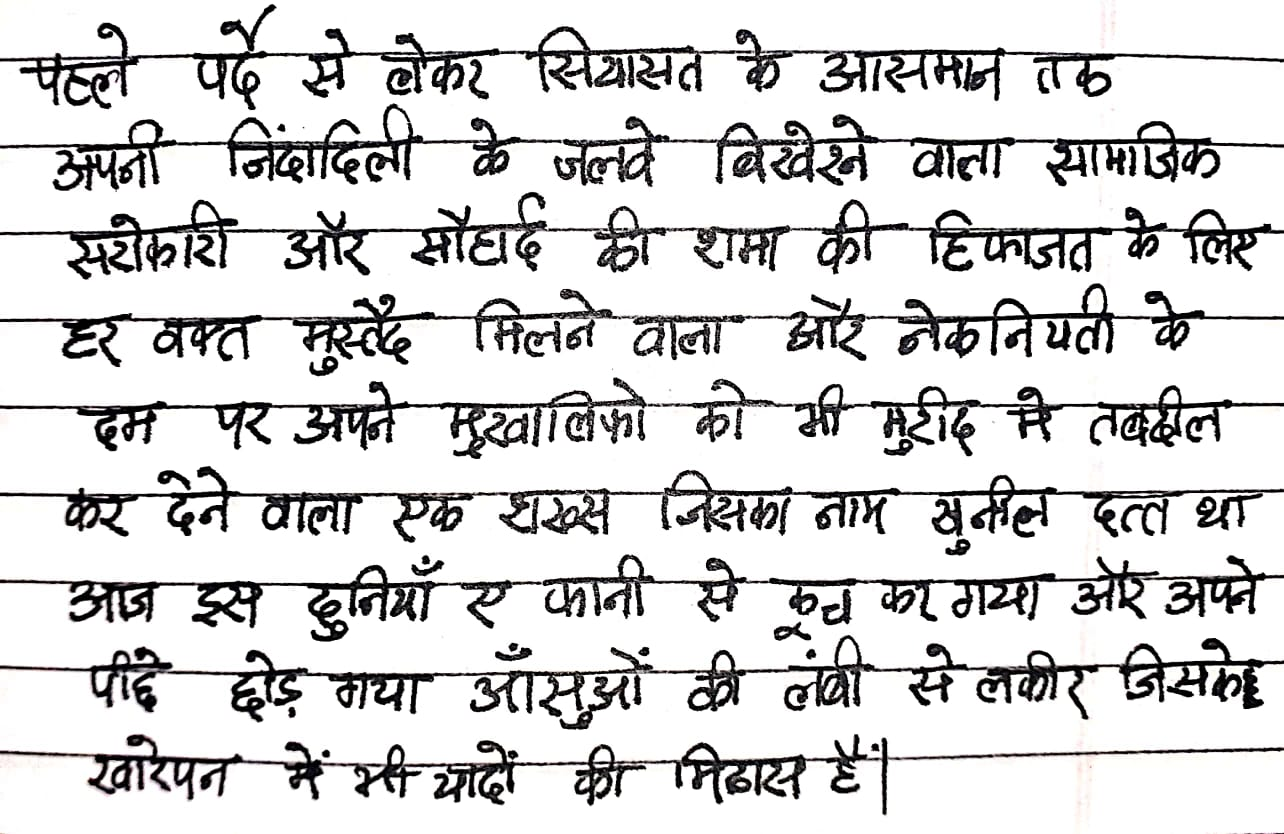 पहले पर्दे से लेकर सियासत के आसमान तक
अपनी जिंदादिली के जलवे बिखेरने वाला सामाजिक
सरोकारी और सौहार्द की शमा की हिफाजत के लिए
हर वक्त मुस्तैद मिलने वाला और नेकनियती के
दम पर अपने मुखालिफो को भी मुरीद मे तबदील
कर देने वाला एक शख्स जिसका नाम सुनील दत्त था
आज इस दुनियाँ ए फानी से कूच कर गया और अपने
पीछे छोड़ गया आँसुओं की लंबी से लकीर जिसके
खारेपन में भी यादों की मिठास हैं।